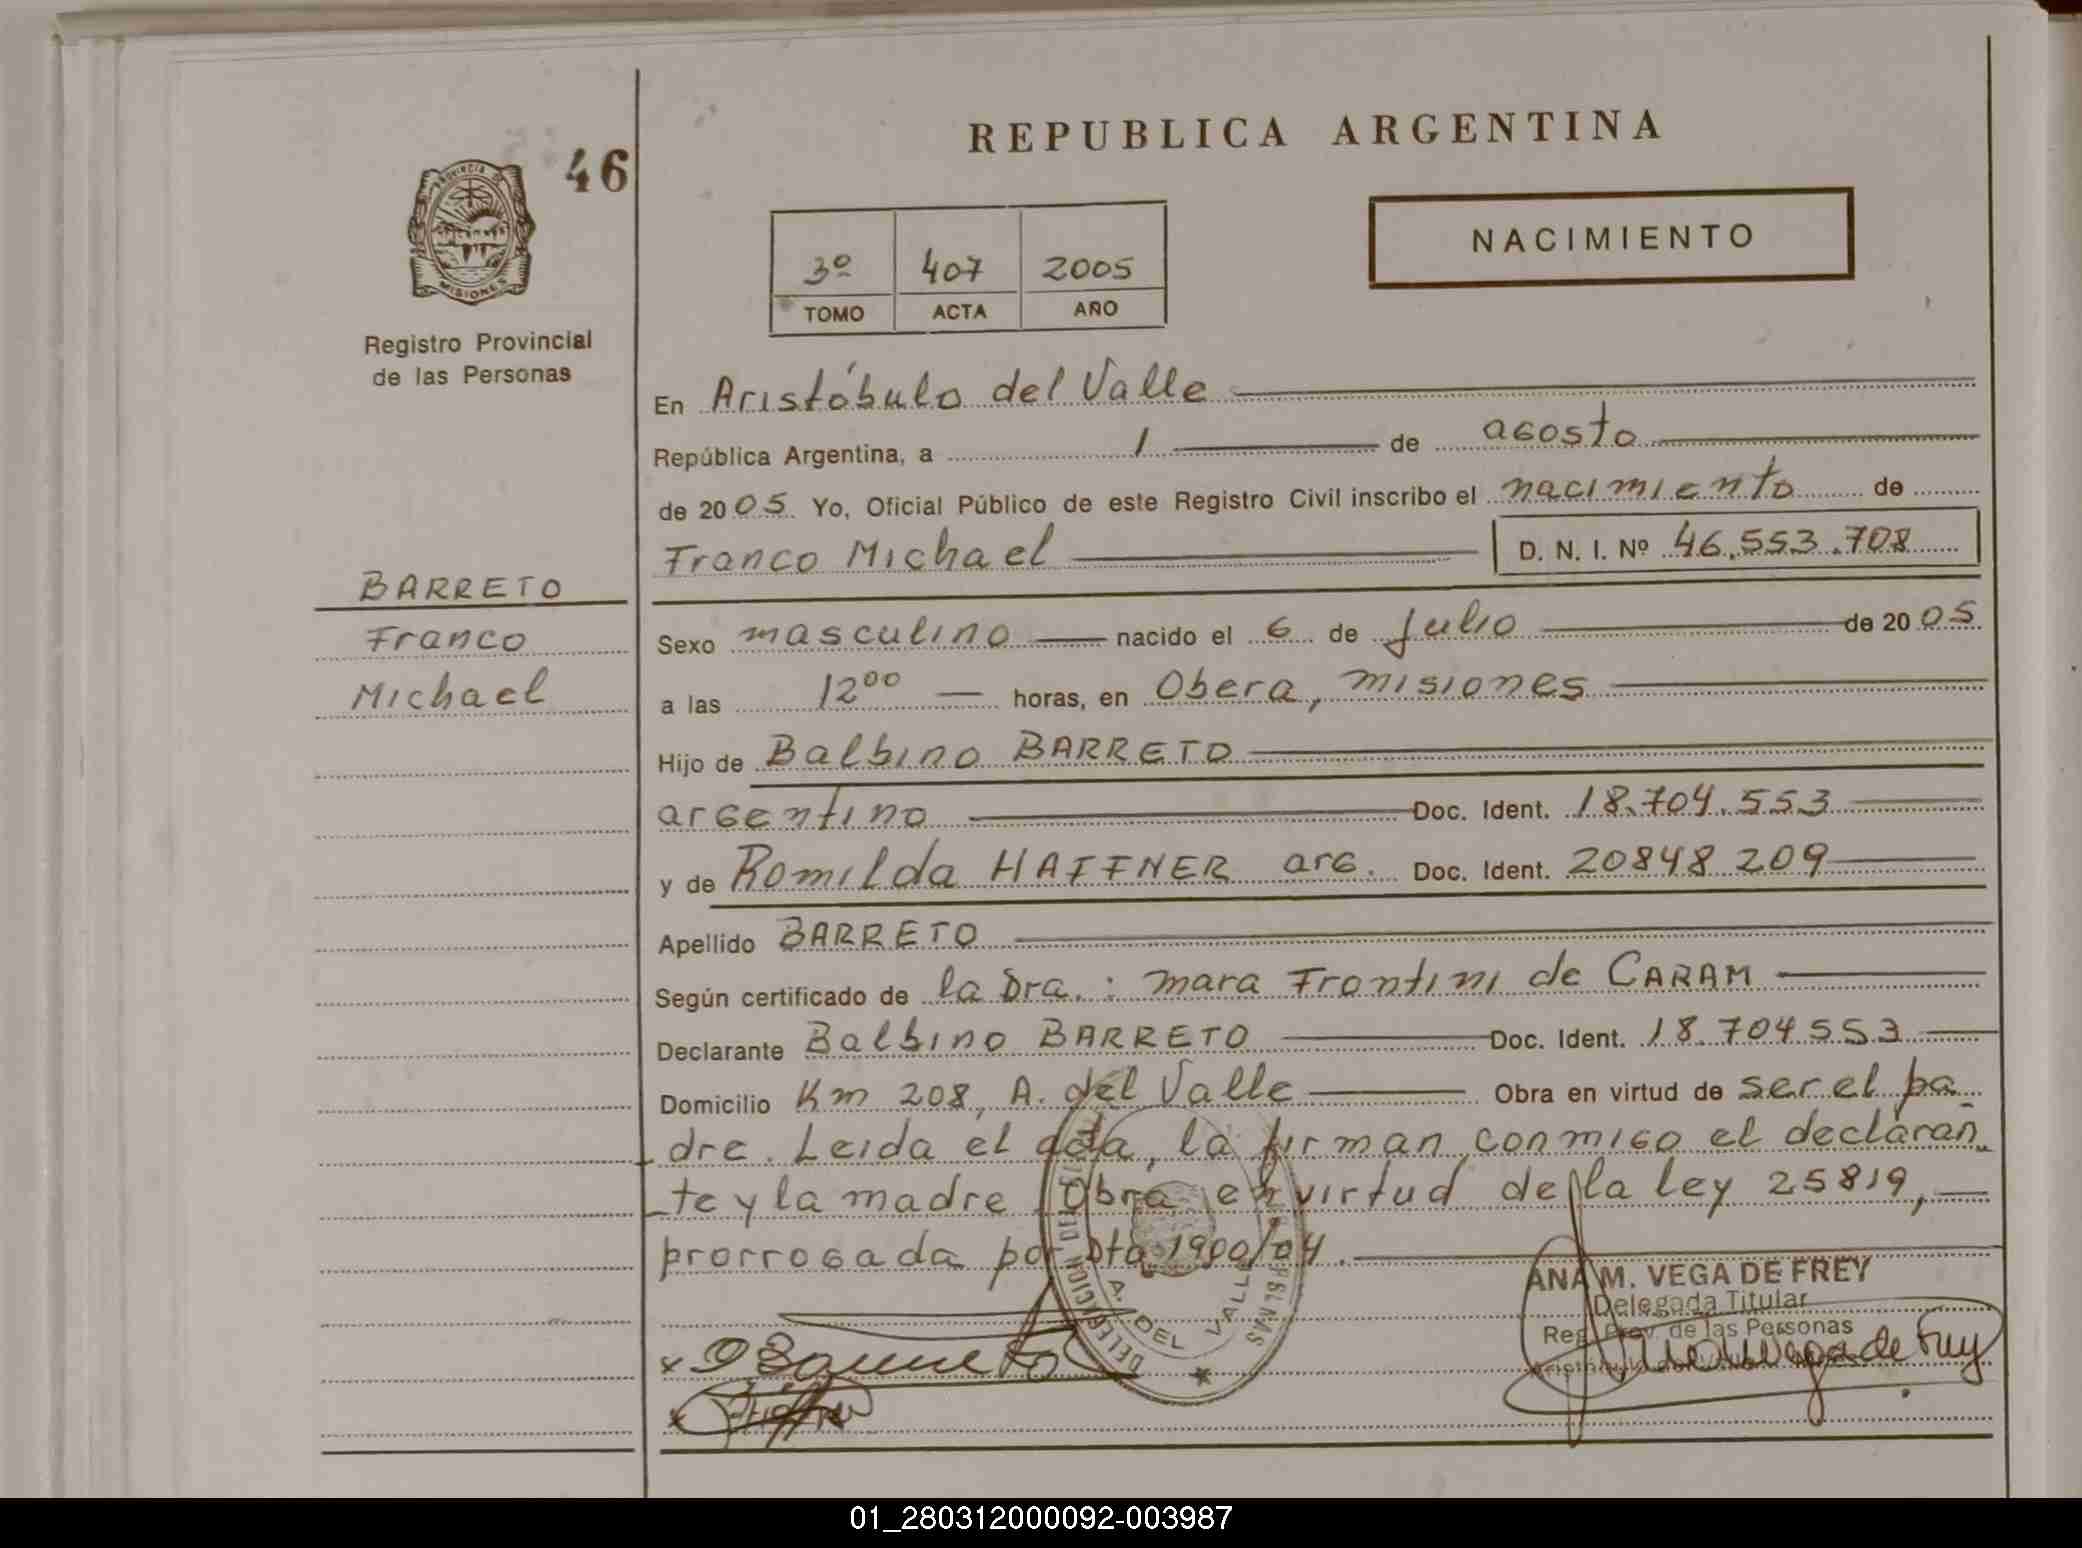 REPUBLICA ARGENTINA
46
PROVINCIA DE
MISIONES
Registro Provincial
de las Personas
NACIMIENTO
3º 407 2005
TOMO ACTA AÑO
En Aristóbulo del Valle
República Argentina, a 1 de agosto
de 2005 Yo, Oficial Público de este Registro Civil inscribo el nacimiento de
Franco Michael D. N. I. Nº 46.553.708
BARRETO
Franco
Michael
Sexo masculino nacido el 6 de Julio de 2005
a las 12⁰⁰ horas, en Obera, misiones
Hijo de Balbino BARRETO
argentino Doc. Ident. 18.704.553
y de Romilda HAFFNER arg. Doc. Ident. 20848209
Apellido BARRETO
Según certificado de la Dra.: Mara Frontini de CARAM
Declarante Balbino BARRETO Doc. Ident. 18.704553
Domicilio Km 208, A. del Valle Obra en virtud de ser el pa
dre. Leida el acta, la firman conmigo el declaran
te y la madre. Obra en virtud de la ley 25819,
prorrogada por Dto 1900/04.
ANA M. VEGA DE FREY
Delegada Titular
Reg. Prov. de las Personas
DELEGACION DE
A. DEL VALLE
01_280312000092-003987